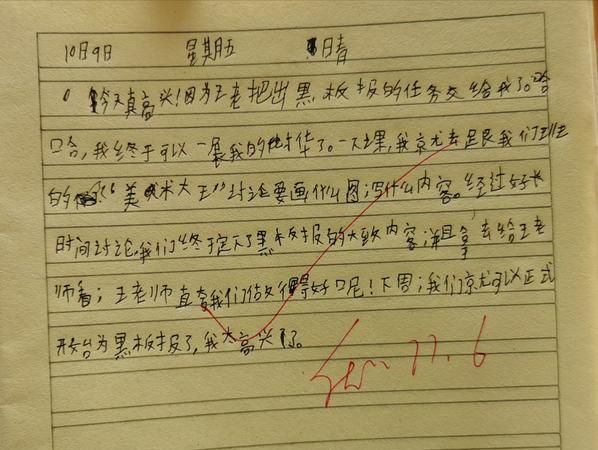 10月9日 星期五 晴
今天真高兴!因为王老把出黑板报的任务交给我了。哈
哈,我终于可以一展我的才华了。一下课,我就去跟我们班
的“美术大王”讨论要画什么图,写什么内容。经过好长
时间讨论,我们终于定下了黑板报的大致内容,并且拿去给王老
师看;王老师直夸我们做得好呢!下周,我们就可以正式
开始为黑板报了,我太高兴了。
11.6